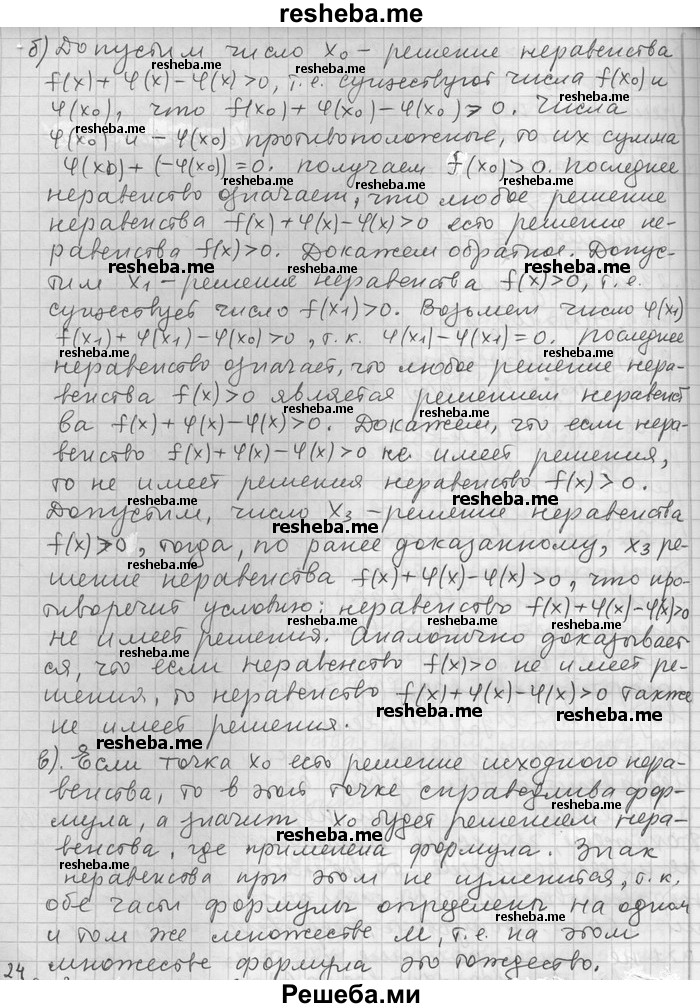 resheba.me
б) Допустим число x₀ – решение неравенства
f(x) + φ(x) – φ(x) > 0, т.е. существуют числа f(x₀) и
φ(x₀), что f(x₀) + φ(x₀) – φ(x₀) > 0. Числа
resheba.me resheba.me
φ(x₀) и – φ(x₀) противоположные, то их сумма
φ(x₀) + (–φ(x₀)) = 0. получаем f(x₀) > 0. последнее
неравенство означает, что любое решение
неравенства f(x) + φ(x) – φ(x) > 0 есть решение не-
равенства f(x) > 0. Докажем обратное. Допус-
resheba.me resheba.me
тим x₁ – решение неравенства f(x) > 0, т.е.
существует число f(x₁) > 0. Возьмем число φ(x₁)
f(x₁) + φ(x₁) – φ(x₀) > 0, т.к. φ(x₁) – φ(x₁) = 0. последнее
resheba.me resheba.me
неравенство означает, что любое решение нера-
венства f(x) > 0 является решением неравенст
resheba.me
ва f(x) + φ(x) – φ(x) > 0. Докажем, что если нера-
венство f(x) + φ(x) – φ(x) > 0 не имеет решения,
то не имеет решения неравенство f(x) > 0.
resheba.me resheba.me
Допустим, число x₃ – решение неравенства
resheba.me
f(x) > 0, тогда, по ранее доказанному, x₃ ре-
шение неравенства f(x) + φ(x) – φ(x) > 0, что про-
тиворечит условию: неравенство f(x) + φ(x) – φ(x) > 0
resheba.me resheba.me
не имеет решения. Аналогично доказывает-
resheba.me
ся, что если неравенство f(x) > 0 не имеет ре-
шения, то неравенство f(x) + φ(x) – φ(x) > 0 также
resheba.me resheba.me
не имеет решения.
resheba.me
в). Если точка x₀ есть решение исходного нера-
венства, то в этой точке справедлива фор-
мула, а значит x₀ будет решением нера-
resheba.me
венства, где применена формула. Знак
resheba.me resheba.me
неравенства при этом не изменится, т.к.
обе части формулы определены на одном
resheba.me
и том же множестве M, т.е. на этом
множестве формула это тождество.
24
Решеба.ми